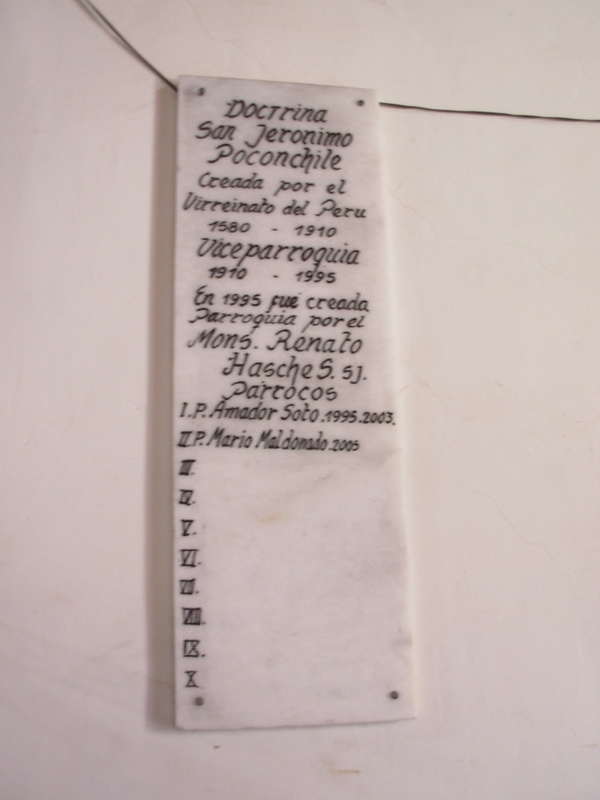 Doctrina
San Jeronimo
Poconchile
Creada por el
Virreinato del Peru
1580 - 1910
Viceparroquia
1910 - 1995
En 1995 fué creada
Parroquia por el
Mons. Renato
Hasche S. sj.
Párrocos
I.P. Amador Soto. 1995-2003.
II.P. Mario Maldonado. 2005
III.
IV.
V.
VI.
VII.
VIII.
IX.
X.